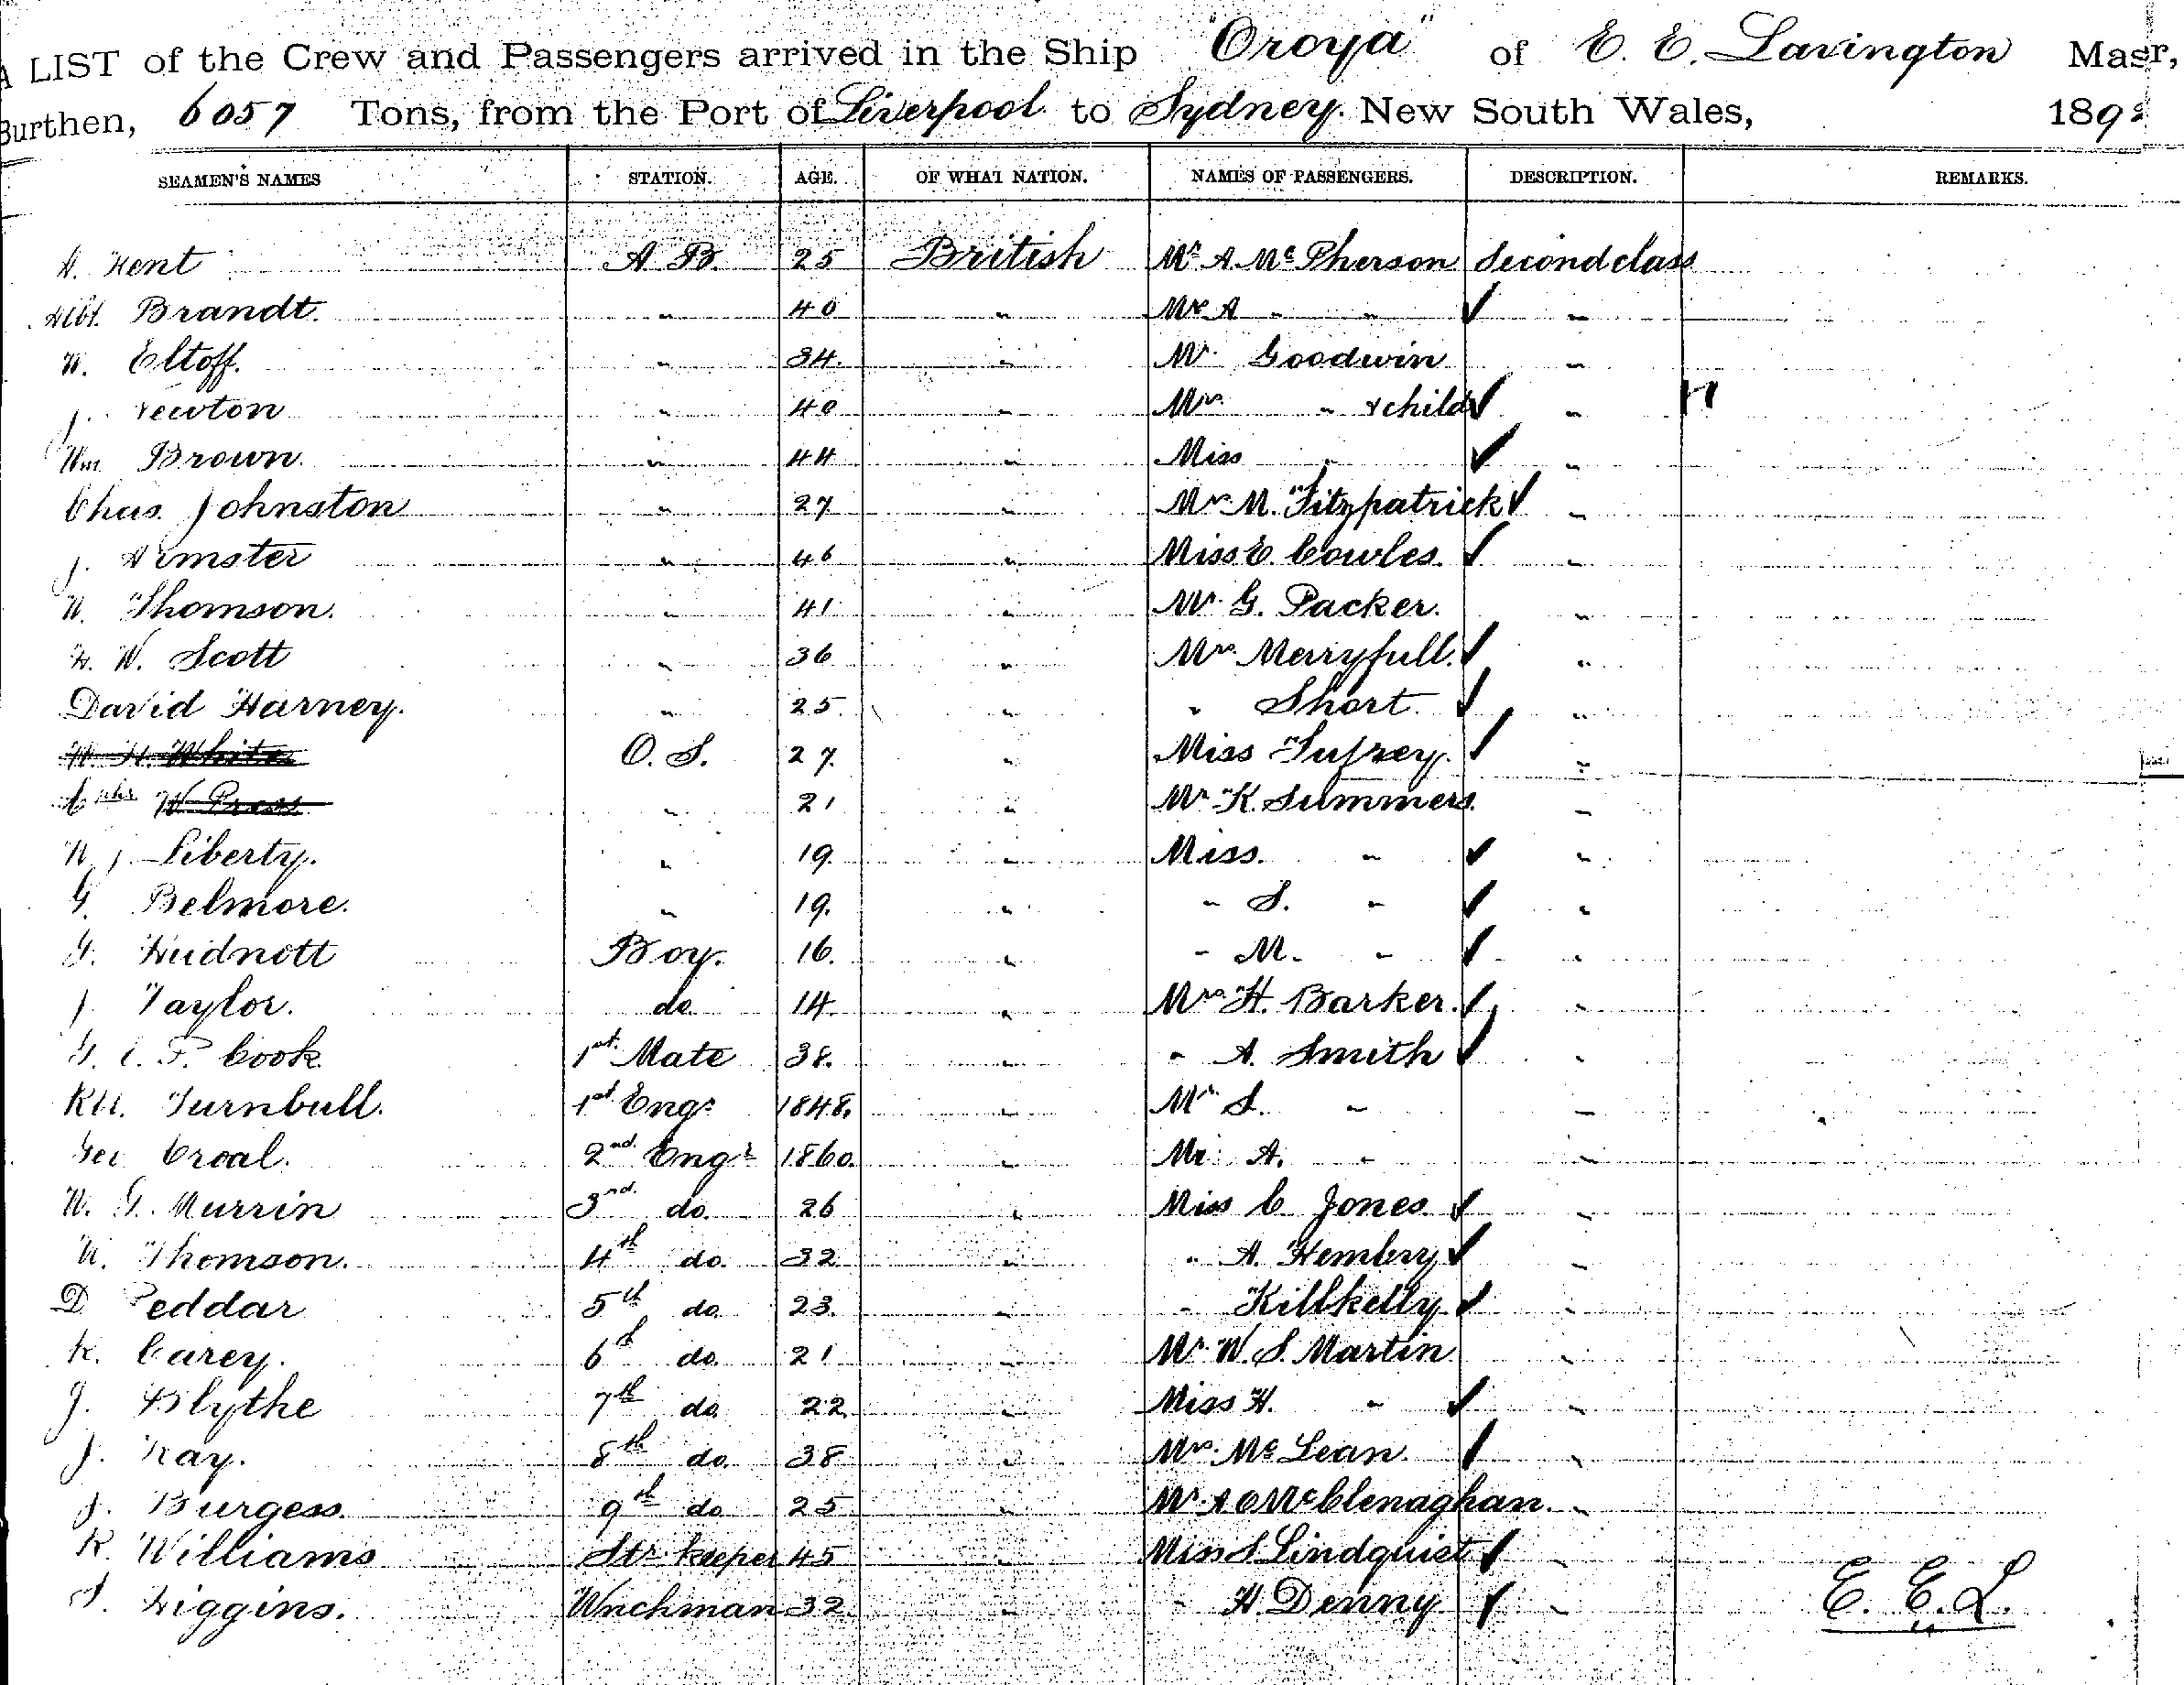 A LIST of the Crew and Passengers arrived in the Ship "Oroya" of E. E. Lavington Masr,
Burthen, 6057 Tons, from the Port of Liverpool to Sydney. New South Wales, 189
SEAMEN'S NAMES STATION. AGE. OF WHAT NATION. NAMES OF PASSENGERS. DESCRIPTION. REMARKS.
Kent A B. 25 British Mr A. McPherson Second class
Brandt. " 40 " A " " "
Eltoff. " 34. " Mr Goodwin "
J. Newton " 40 " Mrs " & child "
Wm Brown. " 44 " Miss " "
Chas. Johnston " 27 " Mrs M. Fitzpatrick "
J. Armster " 46 " Miss E. Cowles. "
Thomson. " 41 " Mr G. Packer. "
W. Scott " 36 " Mrs Merryfull. "
David Harney. " 25. " " Short. "
White O. S. 27. " Miss "
W Press " 21 " Mr K. Summers. "
W J. Liberty. " 19. " Miss. " "
G. Belmore. " 19. " " S. " "
G. Hudnott Boy. 16. " " M. " "
J. Taylor. do. 14. " Mrs H. Barker. "
Cook 1st Mate 38. " " A. Smith "
Turnbull. 1st Engr 1848. " Mr S. " "
Geo Croal. 2nd Engr 1860. " Mr A. " "
W. G. Murrin 3rd do. 26 " Miss C. Jones. "
Thomson. 4th do. 32 " " A. Hembry "
D Peddar 5th do. 23. " " Killkelly "
R. Carey. 6th do. 21 " Mr W. S. Martin "
J. Blythe 7th do. 22 " Miss H. " "
J. Kay. 8th do. 38 " Mrs McLean. "
J. Burgess. 9th do. 25 " Mr A McClenaghan. "
R. Williams Str keeper 45 " Miss S. Lindquist "
Higgins. Wnchman 32 " " H. Denny. " E. E. L.